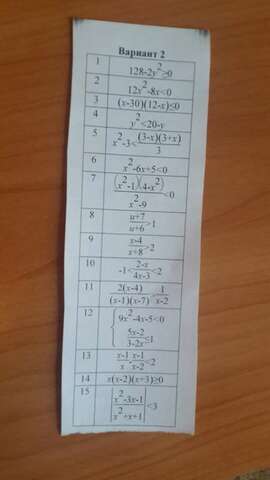 Вариант 2
1 128-2y²≥0
2 12x²-8x<0
3 (x-30)(12-x)≤0
4 y²<20-y
5 x²-3<(3-x)(3+x)/3
6 x²-6x+5<0
7 (x²-1)(4-x²)/(x²-9)<0
8 (u+7)/(u+6)>1
9 (x-4)/(x+8)>2
10 -1<(2-x)/(4x-3)<2
11 2(x-4)/((x-1)(x-7)) 1/(x-2)
12 { 9x²-4x-5<0
(5x-2)/(3-2x)≤1
13 (x-1)/x-(x-1)/(x-2)<2
14 x(x-2)(x+3)≥0
15 |(x²-3x-1)/(x²+x+1)|<3